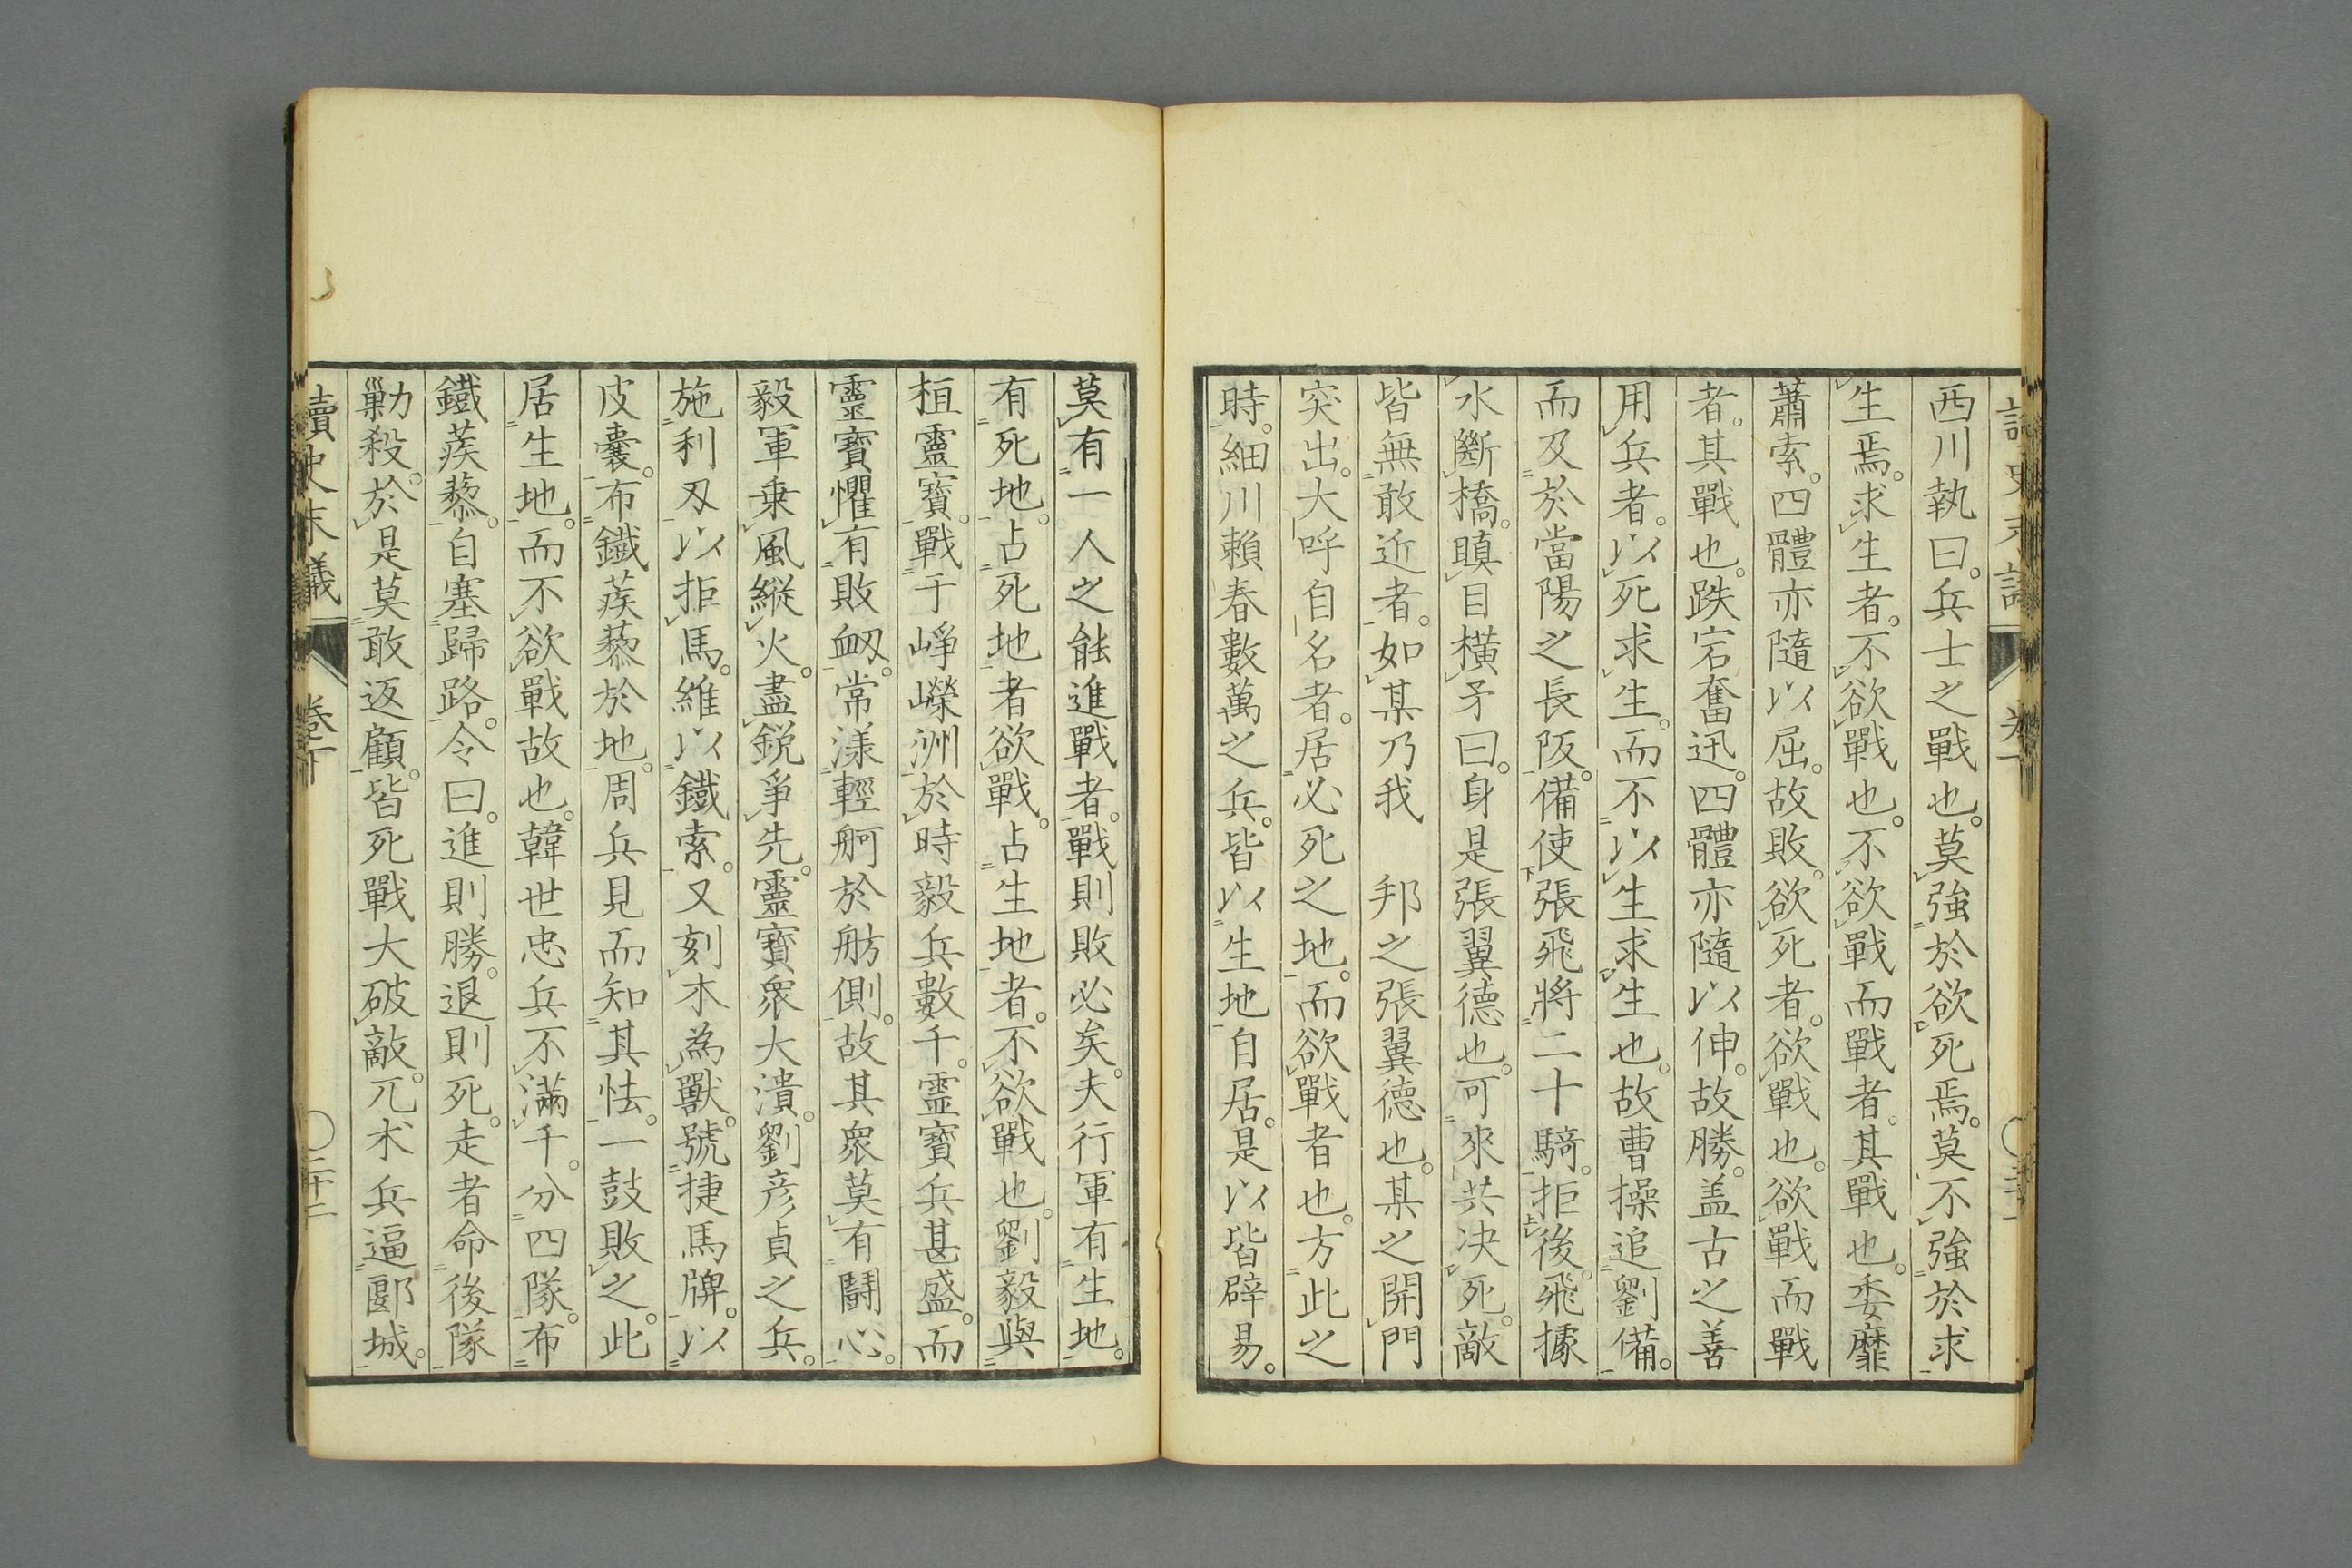 西川執曰。兵士之戰也。莫強於欲死焉。莫不強於求
生焉。求生者。不欲戰也。不欲戰而戰者。其戰也。委靡
蕭索。四體亦隨以屈。故敗。欲死者。欲戰也。欲戰而戰
者。其戰也。跌宕奮迅。四體亦隨以伸。故勝。盖古之善
用兵者。以死求生。而不以生求生也。故曹操追劉備。
而及於當陽之長阪。備使張飛將二十騎。拒後。飛據
水斷橋。瞋目橫矛曰。身是張翼德也。可來共决死。敵
皆無敢近者。如某乃我　邦之張翼德也。某之開門
突出。大呼自名者。居必死之地。而欲戰者也。方此之
時。細川賴春數萬之兵。皆以生地自居。是以皆辟易。
莫有一人之能進戰者。戰則敗必矣。夫行軍有生地。
有死地。占死地者欲戰。占生地者。不欲戰也。劉毅與
桓靈寶。戰于崢嶸洲。於時毅兵數千。靈寶兵甚盛。而
靈寶懼有敗衂。常漾輕舸於舫側。故其衆莫有鬪心。
毅軍乗風縱火。盡鋭爭先。靈寶衆大潰。劉彦貞之兵。
施利刄以拒馬。維以鐵索。又刻木為獸。號捷馬牌。以
皮囊。布鐵蒺藜於地。周兵見而知其怯。一鼓敗之。此
居生地。而不欲戰故也。韓世忠兵不滿千。分四隊。布
鐵蒺藜。自塞歸路。令曰。進則勝。退則死。走者命後隊
勦殺。於是莫敢返顧。皆死戰大破敵。兀术兵逼郾城。
讀史末議　卷下　二十二